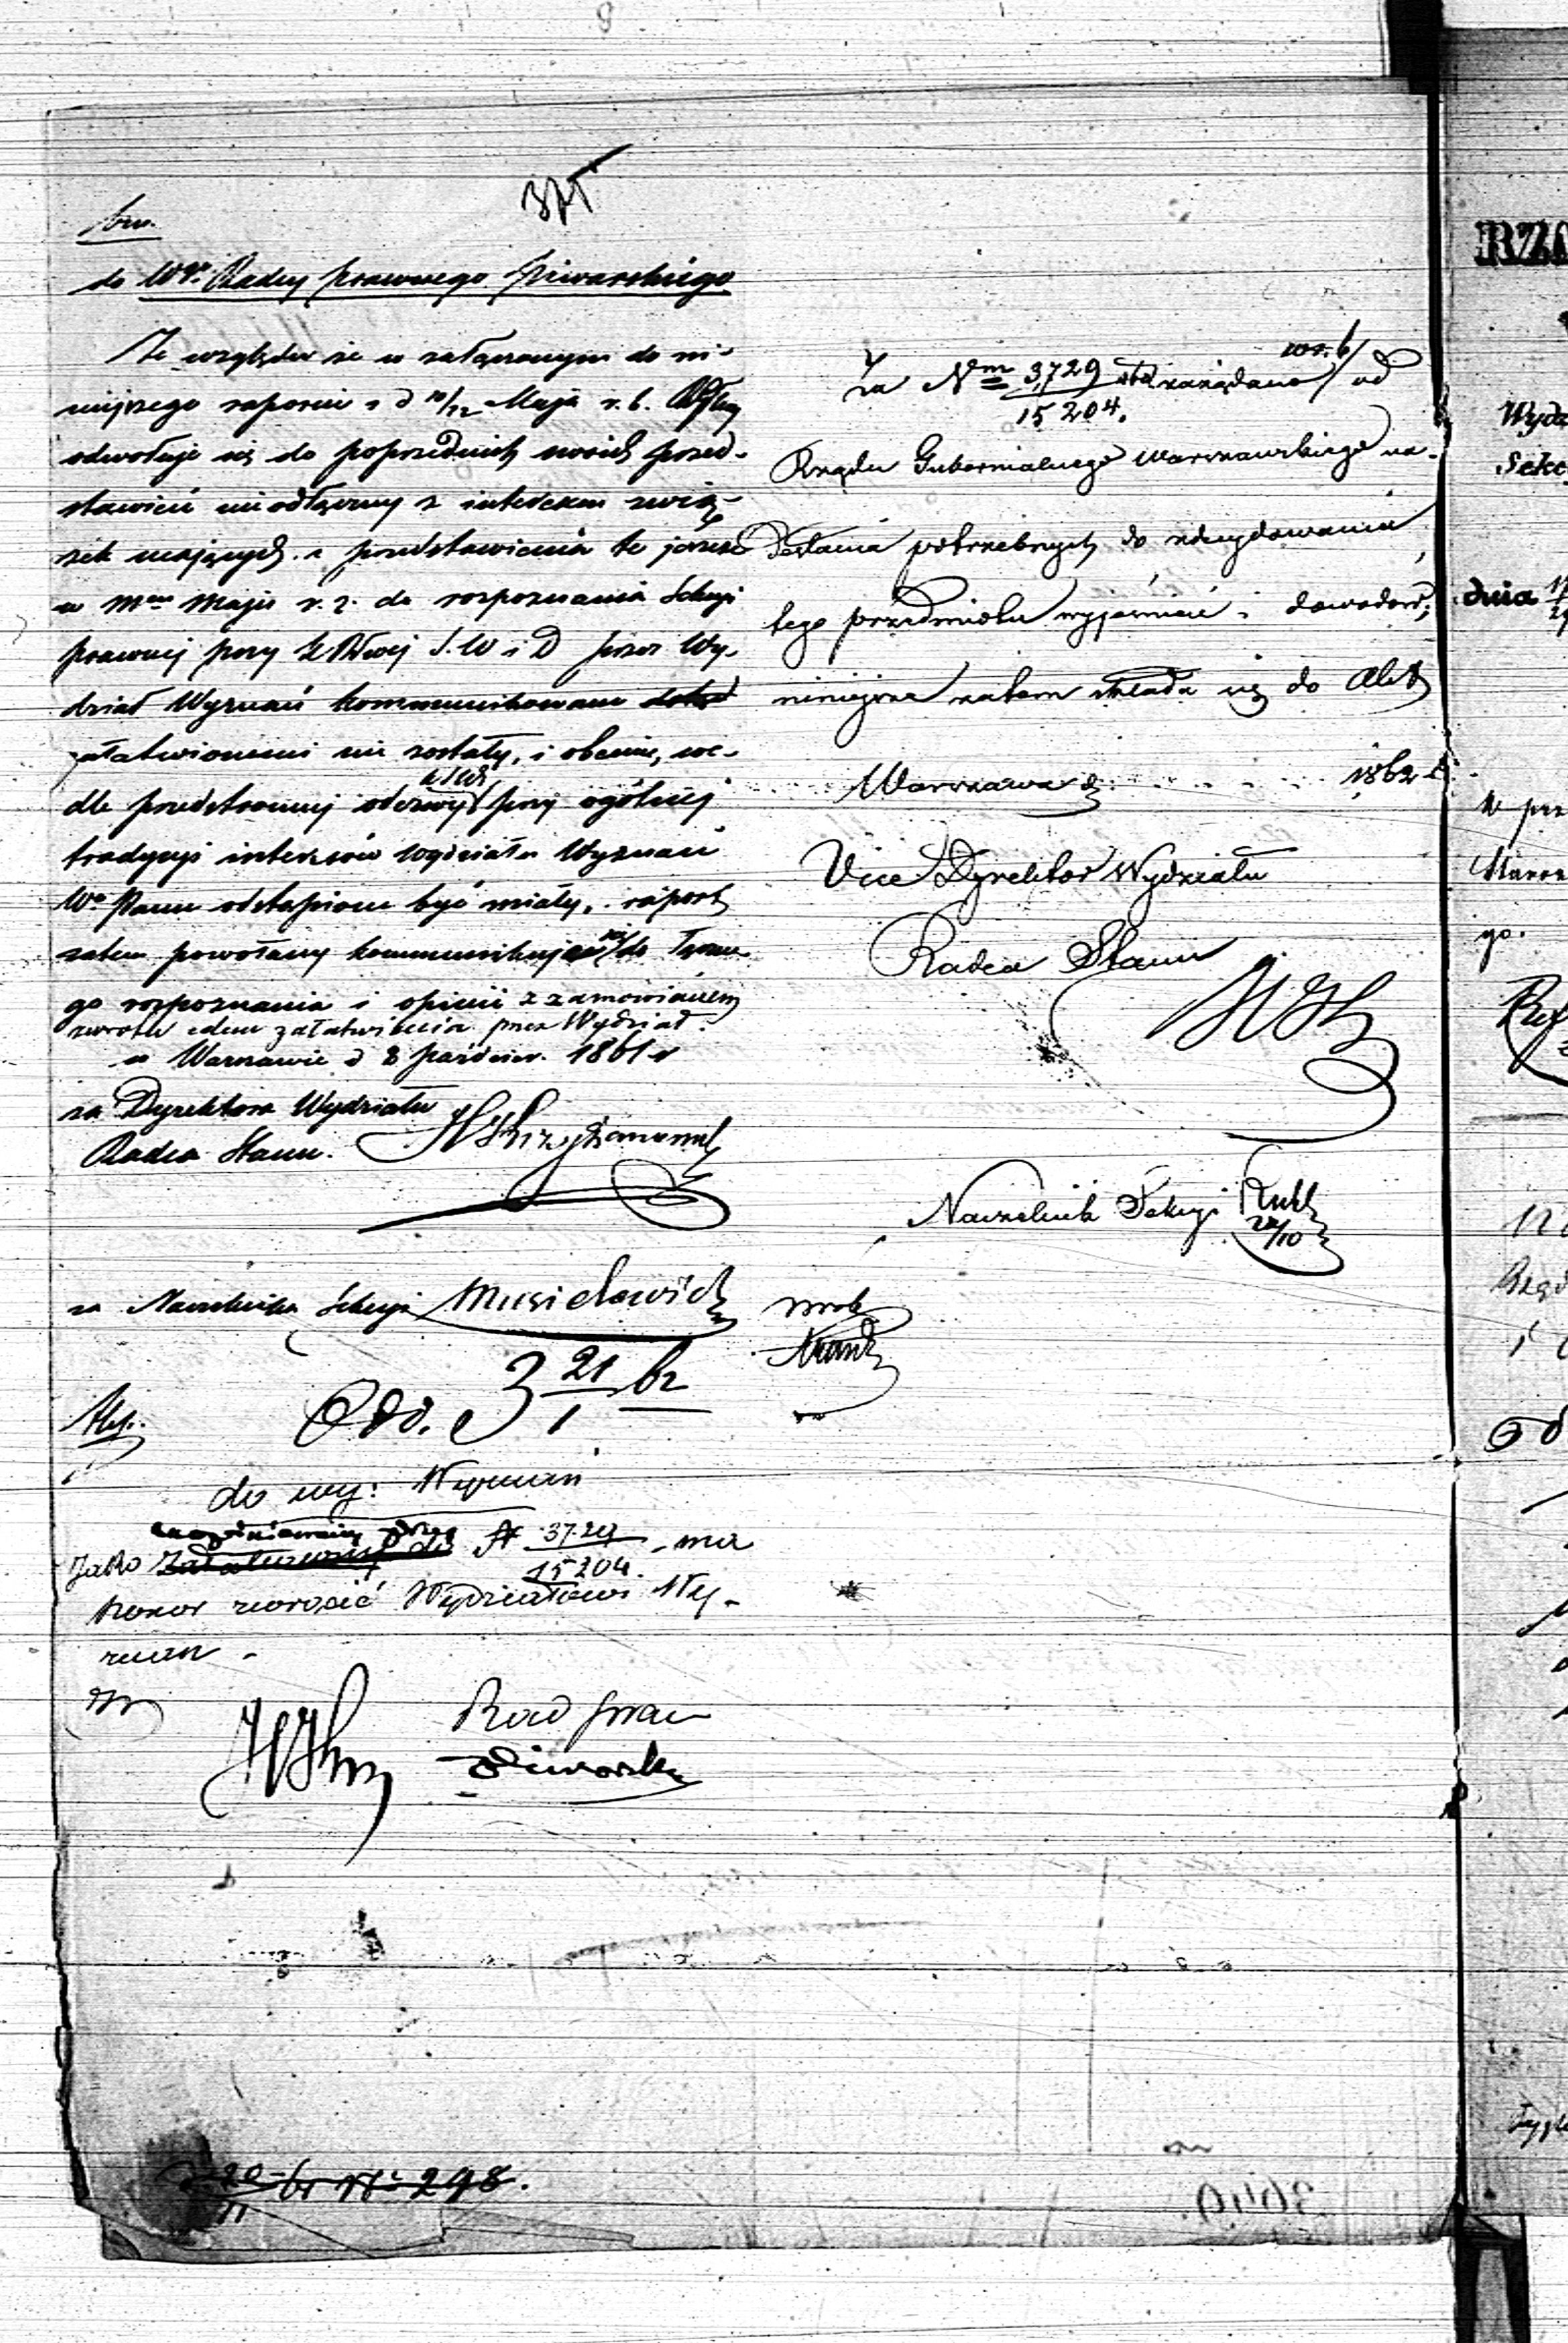 do Wgo Radcy prawnego Piwarskiego
Ze względu że w załączonym do ni-
niejszego raporcie z d 10/22 Maja r. b.
odwołuje się do poprzednich swoich przed-
stawień nieodłączny z interesem zwią-
zek mających. a przedstawienia te jeszcze
w Mcu Maju r. z. do rozpoznania Sekcyi
prawnej przy S. W i D przez Wy-
dział Wyznań kommunikowane
załatwionemi nie zostały, i obecnie, we-
dle przedstawionej odezwy przy ogólnej
tradycyi interesów Wydziału Wyznań
Wu Panu odstąpione być miały, raport
zatem powołany kommunikuje do Jego
rozpoznania i opinii z zamówieniem
zwrotu celem załatwienia przez Wydział.
w Warszawie d 8 paździer. 1861 r
za Dyrektora Wydziału
Radca Stanu.
za Naczelnika Sekcyi
Odd. d 21/1 62
do wy: Wyznań
Jako No 3729/15204. ma
honor zwrócić Wydziałowi Wy-
znań -
Rad praw
Piwarski
20/11 61 No 298.
Za Nm 3729/15204. zażądano w. b. od
Rządu Gubernialnego Warszawskiego na-
desłania potrzebnych do zdecydowania
tego przedmiotu wyjaśnień i dowodów;
niniejsze zatem składa się do Akt
Warszawa d. . . . . 1862 r.
Vice Dyrektor Wydziału
Radca Stanu
Naczelnik Sekcyi
22/10
RZĄ
Wydz
Sekc
dnia